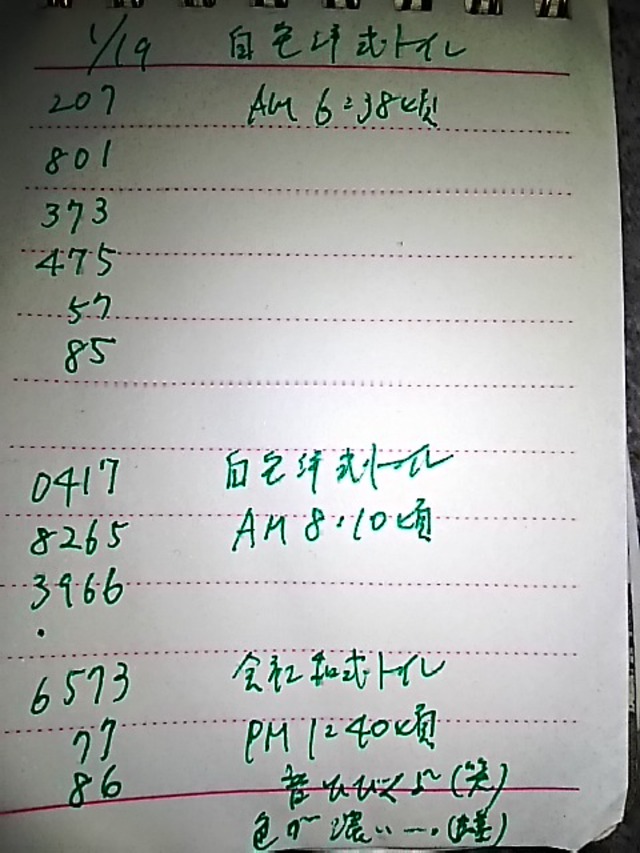 1/19 自宅洋式トイレ
207 AM 6:38頃
801
373
475
57
85
0417 自宅洋式トイレ
8265 AM 8:10頃
3966
.
6573 会社和式トイレ
77 PM 1:40頃
86 音ひびくよ〜(笑)
色が濃い…。